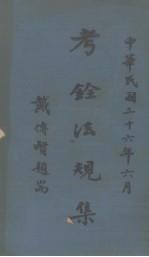 中華民國二十六年六月
考銓法規集
戴傳賢題耑